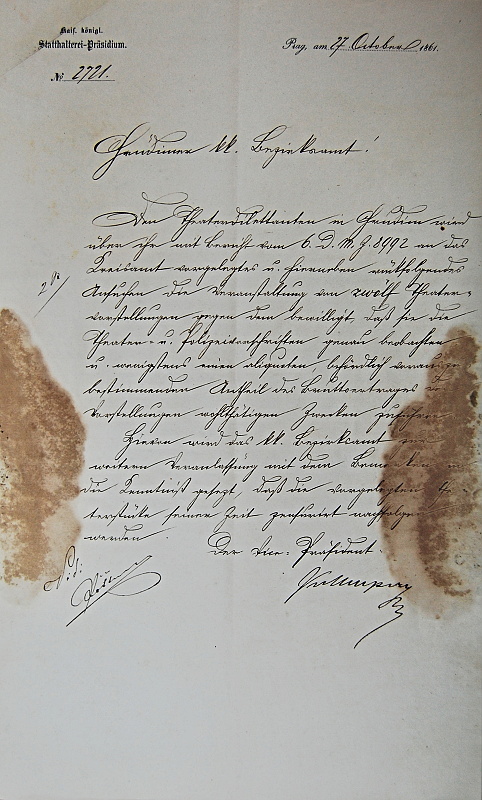 Kais. königl.
Statthalterei-Präsidium.
Prag, am 27 October 1861.
№ 2721.
Chrudimer kk. Bezirksamt!
Den Theaterdilettanten in Chrudim wird
über ihr mit Bericht vom 6. D. M. Z. 8992 an das
Kreisamt vorgelegtes u. hierneben mitfolgendes
Ansuchen die Veranstaltung von zwölf Theater-
vorstellungen gegen dem bewilligt, daß sie die
Theater- u. Polizeivorschriften genau beobachten
u. wenigstens einen aliquoten, behördlich voraus
bestimmenden Antheil des Bruttoertrages
Vorstellungen wohlthätigen Zwecken zuführen
Hievon wird das kk. Bezirksamt zur
weitern Veranlassung mit dem Bemerken in
die Kenntniß gesetzt, daß die vorgelegten
seiner Zeit zensurirt nachfolgen
werden
Der Vice-Präsident